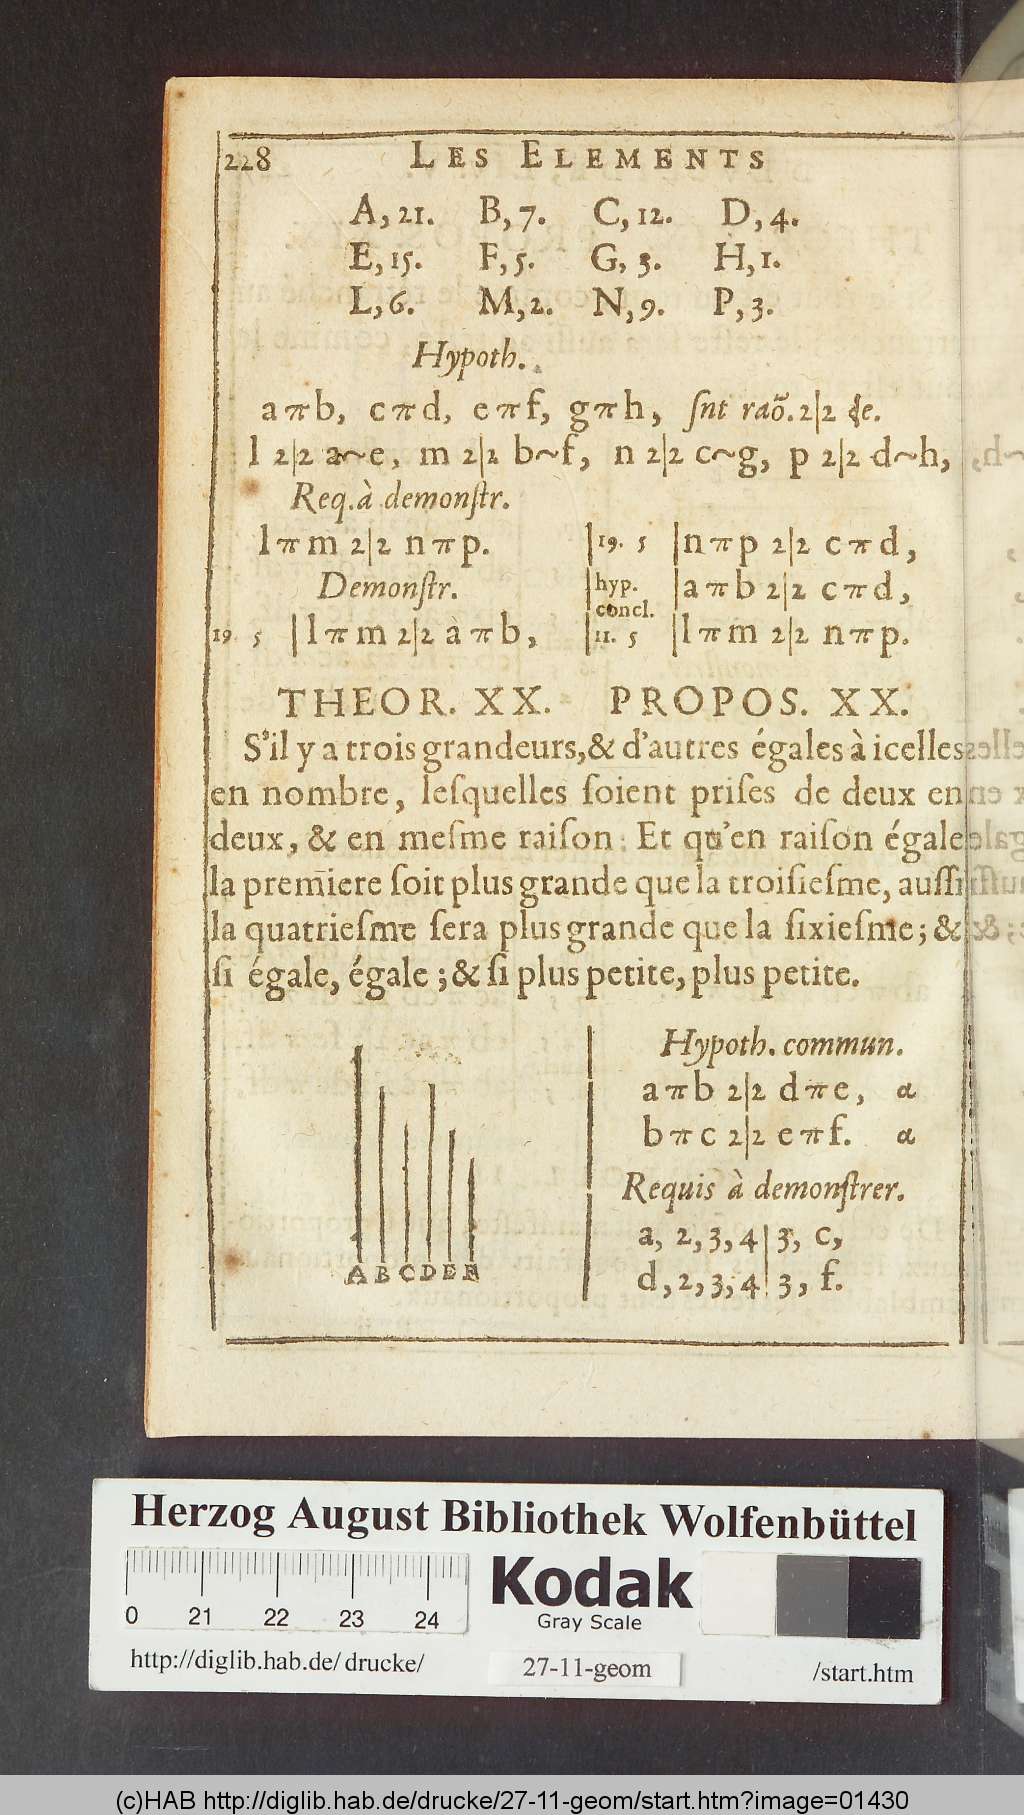 228 LES ELEMENTS
A, 21. B, 7. C, 12. D, 4.
E, 15. F, 5. G, 3. H, 1.
L, 6. M, 2. N, 9. P, 3.
Hypoth.
a π b, c π d, e π f, g π h, ſnt raõ. 2|2 de.
l 2|2 a~e, m 2|2 b~f, n 2|2 c~g, p 2|2 d~h,
Req. à demonſtr.
l π m 2|2 n π p.
Demonſtr.
19. 5 | l π m 2|2 a π b,
|19. 5 |n π p 2|2 c π d,
|hyp. |a π b 2|2 c π d,
concl.
|11. 5 |l π m 2|2 n π p.
THEOR. XX. PROPOS. XX.
S'il y a trois grandeurs, & d'autres égales à icelles
en nombre, leſquelles ſoient priſes de deux en
deux, & en meſme raiſon: Et qu'en raiſon égale
la premiere ſoit plus grande que la troiſieſme, auſſi
la quatrieſme ſera plus grande que la ſixieſme; &
ſi égale, égale; & ſi plus petite, plus petite.
A B C D E F
Hypoth. commun.
a π b 2|2 d π e, α
b π c 2|2 e π f. α
Requis à demonſtrer.
a, 2, 3, 4| 3, c,
d, 2, 3, 4| 3, f.
Herzog August Bibliothek Wolfenbüttel
0 21 22 23 24
Kodak
Gray Scale
http://diglib.hab.de/drucke/ 27-11-geom /start.htm
(c)HAB http://diglib.hab.de/drucke/27-11-geom/start.htm?image=01430